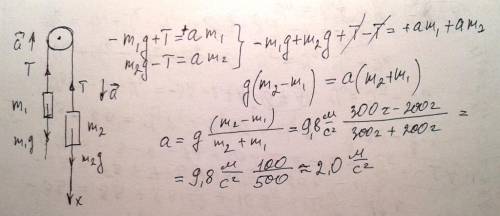 a⃗ ↑
T
m₁
m₁g
T
↓ a⃗
m₂
m₂g
x
-m₁g+T=⁺a m₁
m₂g-T=a m₂
} -m₁g+m₂g+T-T=+am₁+am₂
g(m₂-m₁)=a(m₂+m₁)
a = g (m₂-m₁)/(m₂+m₁) = 9,8 м/с² (300г-200г)/(300г+200г) =
= 9,8 м/с² 100/500 ≈ 2,0 м/с²